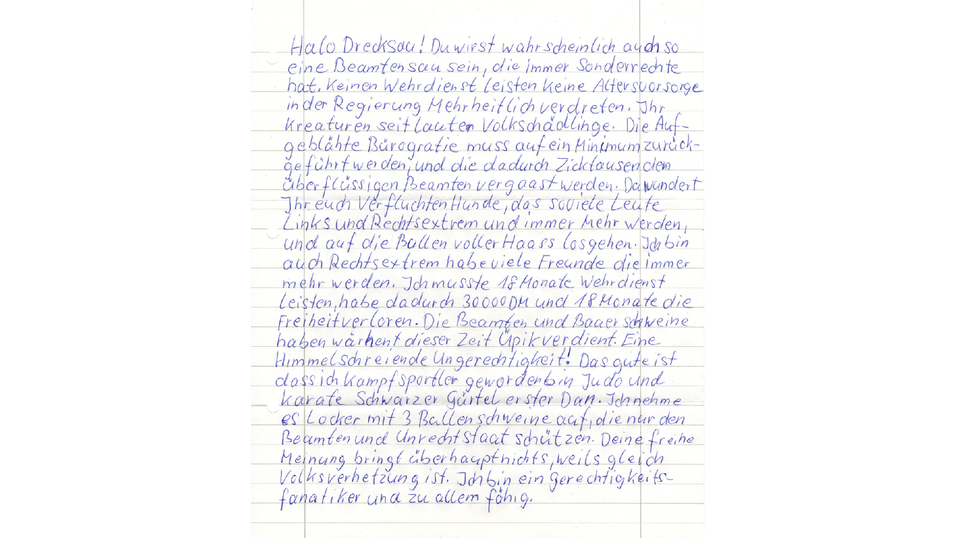 Halo Drecksau! Du wirst wahrscheinlich auch so
eine Beamtensau sein, die immer Sonderrechte
hat. Keinen Wehrdienst leisten keine Altersvorsorge
in der Regierung Mehrheitlich verdreten. Ihr
Kreaturen seit lauter Volkschädlinge. Die Auf-
geblähte Bürogratie muss auf ein Minimum zurück-
geführt werden, und die dadurch Zicktausenden
überflüssigen Beamten vergaast werden. Da wundert
Ihr euch Verfluchten Hunde, das soviele Leute
Links und Rechtsextrem und immer Mehr werden,
und auf die Bullen voller Haass losgehen. Ich bin
auch Rechtsextrem habe viele Freunde die immer
mehr werden. Ich musste 18 Monate Wehrdienst
leisten, habe dadurch 30000DM und 18 Monate die
Freiheit verloren. Die Beamten und Bauerschweine
haben wärhent dieser Zeit Üpik verdient. Eine
Himmelschreiende Ungerechtigkeit! Das gute ist
dass ich Kampfsportler geworden bin Judo und
Karate Schwarzer Gürtel erster Dan. Ich nehme
es Locker mit 3 Bullenschweine auf, die nur den
Beamten und Unrechtstaat schützen. Deine freihe
Meinung bringt überhaupt nichts, weils gleich
Volksverhetzung ist. Ich bin ein Gerechtigkeits-
fanatiker und zu allem fähig.